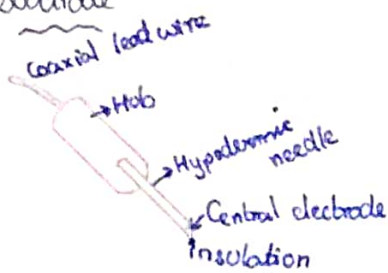 coaxial lead wire
Hub
Hypodermic
needle
Central electrode
insulation